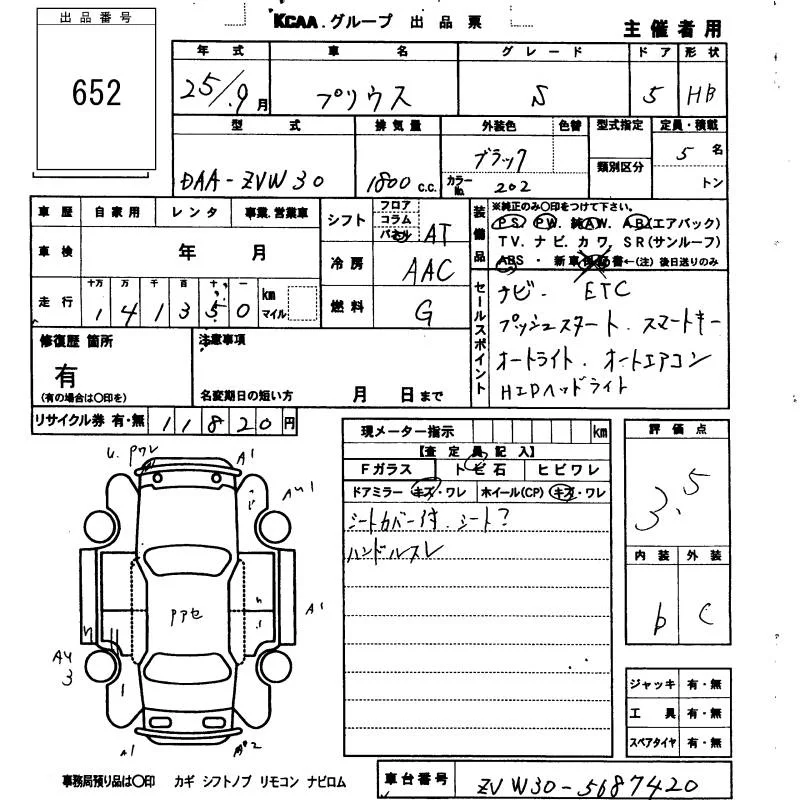 出品番号
652
KCAA.グループ 出品票
主催者用
年式 車名 グレード ドア 形状
25/9月 プリウス S 5 HB
型式 排気量 外装色 色替 型式指定 定員・積載
DAA-ZVW30 1800 c.c. ブラック 5名
カラーNo. 202 類別区分 トン
車歴 自家用 レンタ 事業.営業車
シフト フロア コラム パネル AT
装備品 ※純正のみ○印をつけて下さい。
PS. PW. 純AW. AB(エアバック)
TV. ナビ. カワ. SR(サンルーフ)
ABS・新車保証書←(注)後日送りのみ
車検 年 月
冷房 AAC
走行 十万 万 千 百 十 一
1 4 1 3 5 0 km マイル
燃料 G
セールスポイント ナビ. ETC
プッシュスタート. スマートキー
オートライト. オートエアコン
HIDヘッドライト
修復歴 箇所
有
(有の場合は○印を)
注意事項
名変期日の短い方 月 日まで
リサイクル券 有・無 11820円
現メーター指示 km
【査定員記入】
Fガラス トビ石 ヒビワレ
ドアミラー キズ・ワレ ホイール(CP) キズ・ワレ
シートカバー付. シート?
ハンドルスレ
評価点
3.5
内装 外装
b C
A1
A1
A4
3
A1
ジャッキ 有・無
工具 有・無
スペアタイヤ 有・無
事務局預り品は○印 カギ シフトノブ リモコン ナビロム
車台番号 ZVW30-5687420